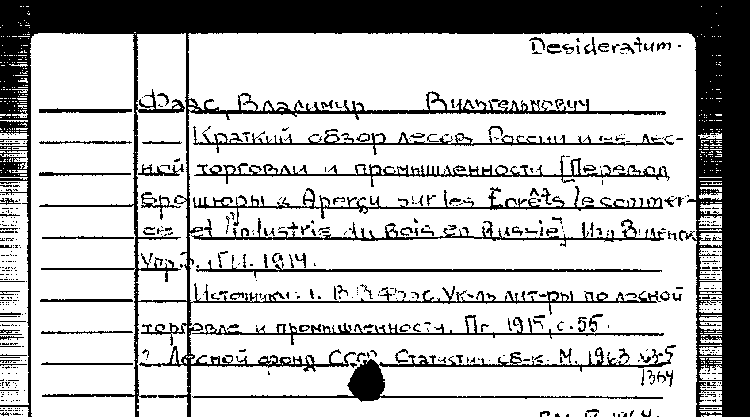 Desideratum.
Фаас, Владимир Вильгельмович
Краткий обзор лесов России и ее лес-
ной торговли и промышленности [Перевод
брошюры "Aperçu sur les Forêts le commer-
ce et l'industrie du Bois en Russie] Изд. Виленск.
Упр. З. и Г.И. 1914.
Источники: 1. В.В. Фаас. Ук-ль лит-ры по лесной
торговле и промышленности. Пг. 1915, с. 55.
2. Лесной фонд СССР. Статистич. сб-к. М., 1963